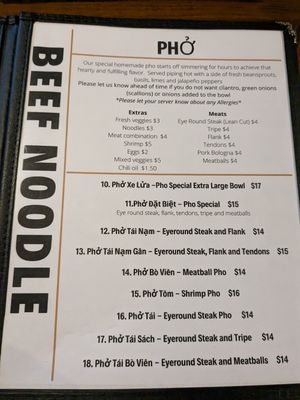 BEEF NOODLE
PHỞ
Our special homemade pho starts off simmering for hours to achieve that
hearty and fulfilling flavor. Served piping hot with a side of fresh beansprouts,
basils, limes and jalapeño peppers
Please let us know ahead of time if you do not want cilantro, green onions
(scallions) or onions added to the bowl
*Please let your server know about any Allergies*
Extras
Fresh veggies $3
Noodles $3
Meat combination $4
Shrimp $5
Eggs $2
Mixed veggies $5
Chili oil $1.50
Meats
Eye Round Steak (Lean Cut) $4
Tripe $4
Flank $4
Tendons $4
Pork Bologna $4
Meatballs $4
10. Phở Xe Lửa –Pho Special Extra Large Bowl $17
11.Phở Đặt Biệt – Pho Special $15
Eye round steak, flank, tendons, tripe and meatballs
12. Phở Tái Nạm – Eyeround Steak and Flank $14
13. Phở Tái Nạm Gân – Eyeround Steak, Flank and Tendons $15
14. Phở Bò Viên – Meatball Pho $14
15. Phở Tôm – Shrimp Pho $16
16. Phở Tái – Eyeround Steak Pho $14
17. Phở Tái Sách – Eyeround Steak and Tripe $14
18. Phở Tái Bò Viên – Eyeround Steak and Meatballs $14